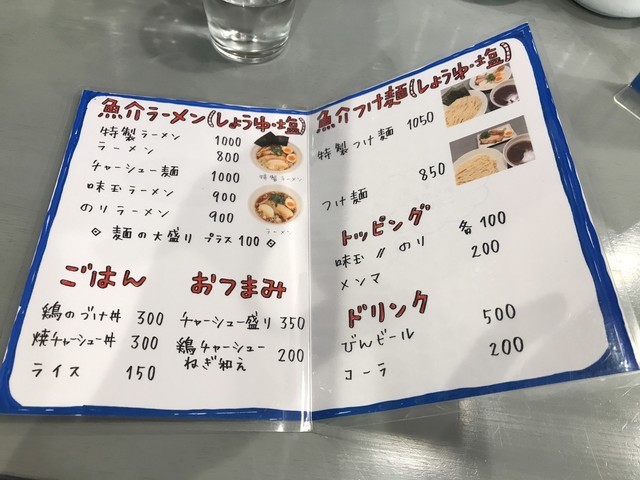 魚介ラーメン(しょうゆ・塩)
特製ラーメン 1000
ラーメン 800
チャーシュー麺 1000
味玉ラーメン 900
のりラーメン 900
麺の大盛り プラス 100
特製ラーメン
ラーメン
ごはん
鶏のづけ丼 300
焼チャーシュー丼 300
ライス 150
おつまみ
チャーシュー盛り 350
鶏チャーシュー
ねぎ和え 200
魚介つけ麺(しょうゆ・塩)
特製つけ麺 1050
つけ麺 850
トッピング
味玉 〃 のり 各100
メンマ 200
ドリンク
びんビール 500
コーラ 200